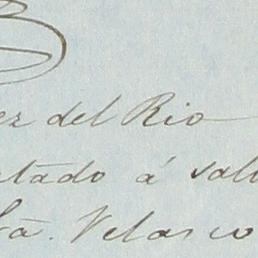 ez del Rio
tado á sal
Velasco